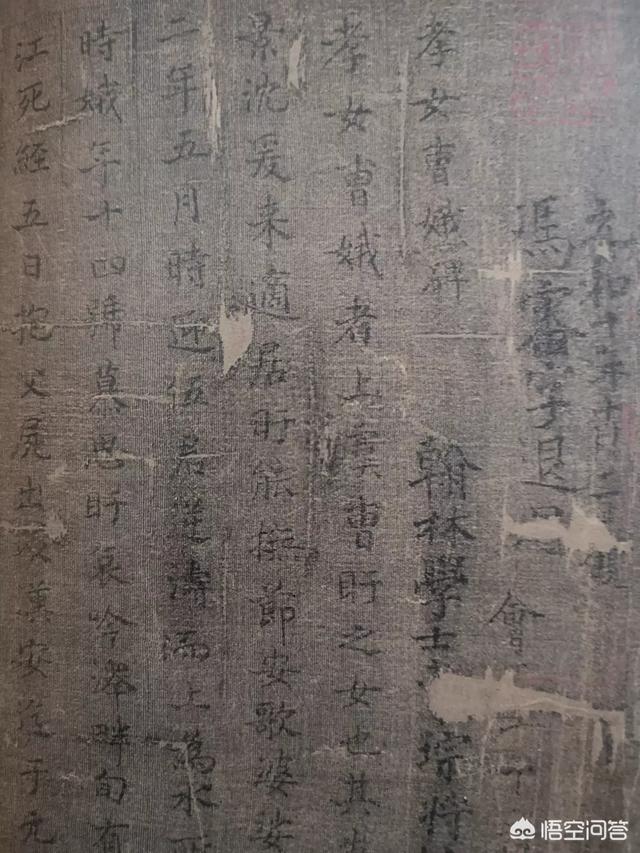 十年十
馮審字退
會
孝女曹娥碑
翰林學士
孝女曹娥者上虞曹盱之女也其
景沈爰来適居盱能撫節安歌婆娑
二年五月時迎伍君逆濤而上為水
時娥年十四號慕思盱哀吟澤畔旬有
江死經五日抱父屍出以漢安迄于元
悟空问答